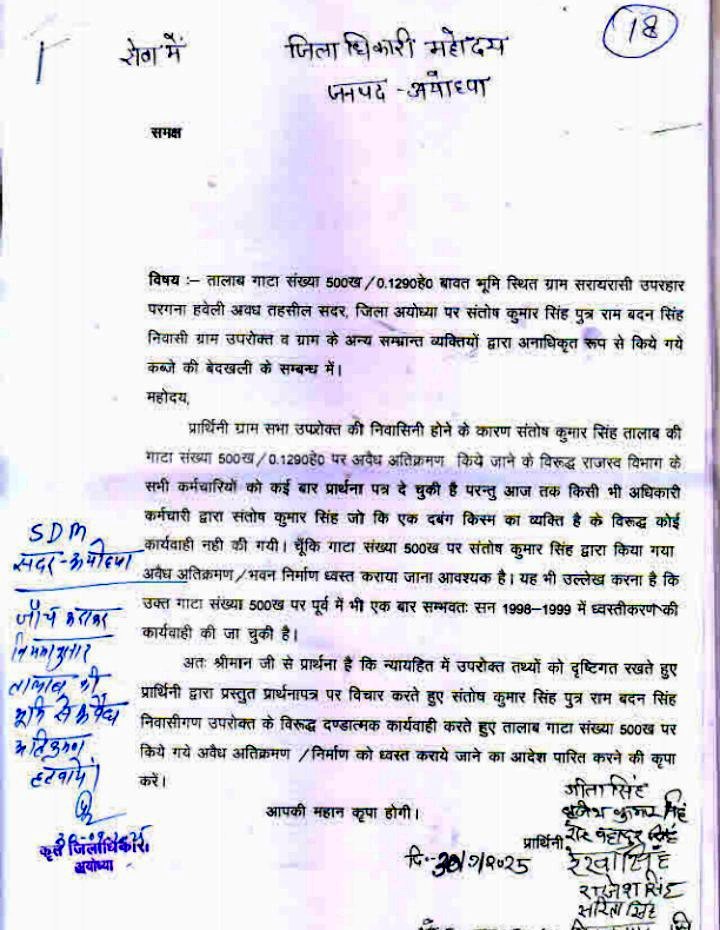 18
सेवा में
जिलाधिकारी महोदय
जनपद - अयोध्या
समक्ष
विषय :– तालाब गाटा संख्या 500ख/0.1290हे0 बावत भूमि स्थित ग्राम सरायरासी उपरहार
परगना हवेली अवध तहसील सदर, जिला अयोध्या पर संतोष कुमार सिंह पुत्र राम बदन सिंह
निवासी ग्राम उपरोक्त व ग्राम के अन्य सम्भ्रान्त व्यक्तियों द्वारा अनाधिकृत रूप से किये गये
कब्जे की बेदखली के सम्बन्ध में।
महोदय,
प्रार्थिनी ग्राम सभा उपरोक्त की निवासिनी होने के कारण संतोष कुमार सिंह तालाब की
गाटा संख्या 500ख/0.1290हे0 पर अवैध अतिक्रमण किये जाने के विरूद्ध राजस्व विभाग के
सभी कर्मचारियों को कई बार प्रार्थना पत्र दे चुकी है परन्तु आज तक किसी भी अधिकारी
कर्मचारी द्वारा संतोष कुमार सिंह जो कि एक दबंग किस्म का व्यक्ति है के विरूद्ध कोई
कार्यवाही नही की गयी। चूँकि गाटा संख्या 500ख पर संतोष कुमार सिंह द्वारा किया गया
अवैध अतिक्रमण/भवन निर्माण ध्वस्त कराया जाना आवश्यक है। यह भी उल्लेख करना है कि
उक्त गाटा संख्या 500ख पर पूर्व में भी एक बार सम्भवतः सन 1998–1999 में ध्वस्तीकरण की
कार्यवाही की जा चुकी है।
अतः श्रीमान जी से प्रार्थना है कि न्यायहित में उपरोक्त तथ्यों को दृष्टिगत रखते हुए
प्रार्थिनी द्वारा प्रस्तुत प्रार्थनापत्र पर विचार करते हुए संतोष कुमार सिंह पुत्र राम बदन सिंह
निवासीगण उपरोक्त के विरूद्ध दण्डात्मक कार्यवाही करते हुए तालाब गाटा संख्या 500ख पर
किये गये अवैध अतिक्रमण /निर्माण को ध्वस्त कराये जाने का आदेश पारित करने की कृपा
करें।
आपकी महान कृपा होगी।
प्रार्थिनी
गीता सिंह
बृजेश कुमार सिंह
वीर बहादुर सिंह
रेखा सिंह
राजेश सिंह
सरिता सिंह
दि०-30/9/2025
SDM
सदर - अयोध्या
जाँच कराकर
नियमानुसार
तालाब की
भूमि से अवैध
अतिक्रमण
हटवायें।
कृते जिलाधिकारी
अयोध्या